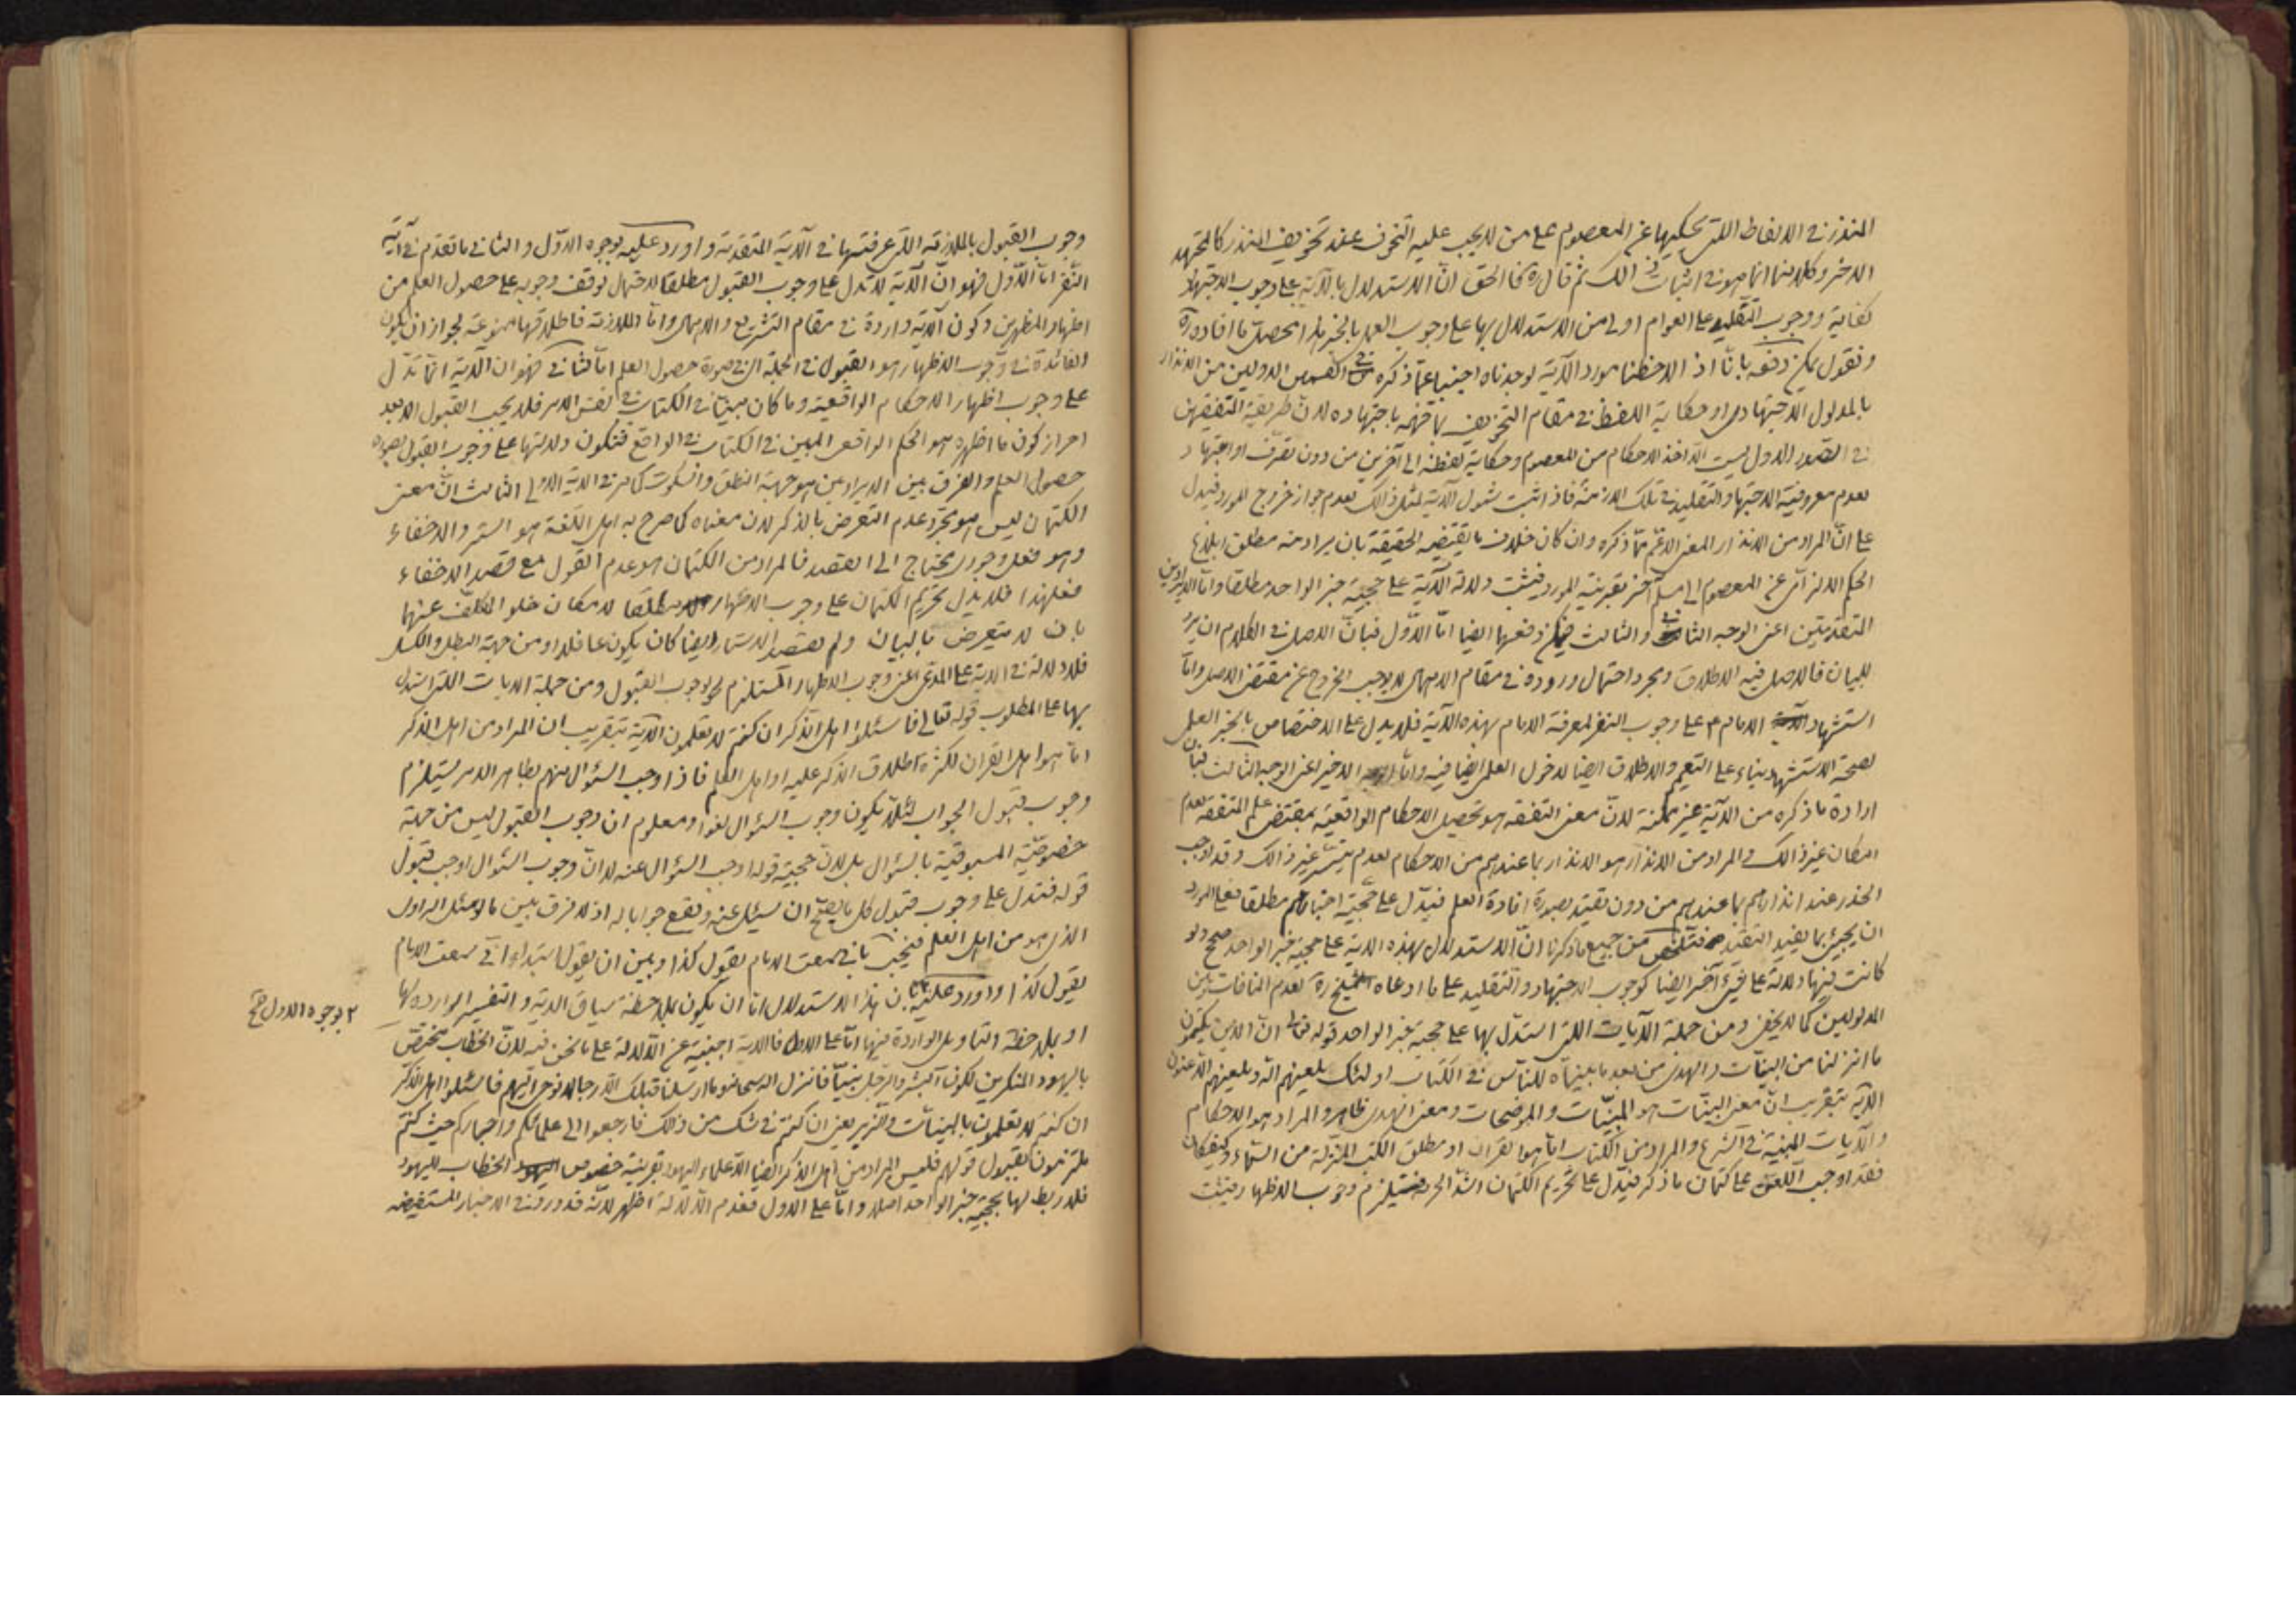 المنذر في الالفاظ التي يحكيها عن المعصوم على من لا يجب عليه التخوف عند تخويف المنذر كالمجتهد
الاخر وكلامنا انما هو في اثبات ذلك ثم قال ره فالحق ان الاستدلال بالآية على وجوب الاجتهاد
كفاية ووجوب التقليد على العوام اولى من الاستدلال بها على وجوب العمل بالخبر هذا محصل ما افاده ره
ونقول يمكن دفعه بانا اذا لاحظنا مورد الآية لوجدناه اجنبيا عما ذكره في القسمين الاولين من الانذار
بالمدلول الاجتهادي او حكاية اللفظ في مقام التخويف بما فهمه باجتهاده لان طريقة المتفقهين
في الصدر الاول ليست الا اخذ الاحكام من المعصوم وحكاية لفظه الى آخرين من دون تصرف او اجتهاد
لعدم معروفية الاجتهاد والتقليد في تلك الازمنة فاذا ثبت شمول الآية لمثل ذلك لعدم جواز خروج المورد فيدل
على ان المراد من الانذار المعنى الاعم مما ذكره وان كان خلاف ما يقتضيه الحقيقة بان يراد منه مطلق ابلاغ
الحكم الالزامي عن المعصوم الى مسلم آخر بقرينة المورد فيثبت دلالة الآية على حجية خبر الواحد مطلقا واما الايرادين
المتقدمين اعني الوجه الثاني والثالث فيمكن دفعها ايضا اما الاول فبان الاصل في الكلام ان يرد
للبيان فالاصل فيه الاطلاق ومجرد احتمال وروده في مقام الاهمال لا يوجب الخروج عن مقتضى الاصل واما
استشهاد الامام ع على وجوب النفر لمعرفة الامام بهذه الآية فلا يدل على الاختصاص بالخبر العلمي
لصحة الاستشهاد بناء على التعميم والاطلاق ايضا لدخول العلمي ايضا فيه واما الاخير اعني الوجه الثالث فبان
ارادة ما ذكره من الآية غير ممكنة لان معنى التفقه هو تحصيل الاحكام الواقعية بمقتضى علم المتفقه لعدم
امكان غير ذلك والمراد من الانذار هو الانذار بما عندهم من الاحكام لعدم تيسر غير ذلك وقد اوجب
الحذر عند انذارهم بما عندهم من دون تقييد بصورة افادة العلم فيدل على حجية اخبارهم مطلقا فعلى المورد
ان يجيئ بما يفيد التقييد فتلخص من جميع ما ذكرنا ان الاستدلال بهذه الآية على حجية خبر الواحد صحيح ولو
كانت فيها دلالة على شيئ آخر ايضا كوجوب الاجتهاد والتقليد على ما ادعاه الشيخ ره لعدم المنافات بين
المدلولين كما لا يخفى ومن جملة الآيات التي استدل بها على حجية خبر الواحد قوله تعالى ان الذين يكتمون
ما انزلنا من البينات والهدى من بعد ما بيناه للناس في الكتاب اولئك يلعنهم الله ويلعنهم اللاعنون
الآية بتقريب ان معنى البينات هو المبينات والموضحات ومعنى الهدى ظاهر والمراد هو الاحكام
والآيات المبينة في الشرع والمراد من الكتاب اما هو القران او مطلق الكتب المنزلة من السماء وكيفكان
فقد اوجب اللعن على كتمان ما ذكر فيدل على تحريم الكتمان اشد الحرمة فيستلزم وجوب الاظهار فيثبت
وجوب القبول بالملازمة التي عرفتها في الآية المتقدمة واورد عليه بوجوه الاول والثاني ما تقدم في آية
النفر اما الاول فهو ان الآية لا تدل على وجوب القبول مطلقا لاحتمال توقف وجوبه على حصول العلم من
اظهار المظهرين وكون الآية واردة في مقام التشريع والاهمال واما الملازمة فاطلاقها ممنوعة لجواز ان يكون
الفائدة في وجوب الاظهار هو القبول في الجملة اي في صورة حصول العلم اما الثاني فهو ان الآية انما تدل
على وجوب اظهار الاحكام الواقعية وما كان مبينا في الكتاب في نفس الامر فلا يجب القبول الا بعد
احراز كون ما اظهره هو الحكم الواقعي المبين في الكتاب في الواقع فتكون دلالتها على وجوب القبول بصورة
حصول العلم والفرق بين الايرادين هو جهة النطق والسكوت كما مر في الآية الاولى الثالث ان معنى
الكتمان ليس هو مجرد عدم التعرض بالذكر لان معناه كما صرح به اهل اللغة هو الستر والاخفاء
وهو فعل وجودي يحتاج الى القصد فالمراد من الكتمان هو عدم القول مع قصد الاخفاء
فعلهذا فلا يدل تحريم الكتمان على وجوب الاظهار مطلقا لامكان خلو المكلف عنهما
بان لا يتعرض بالبيان ولم يقصد الاستتار ايضا كان يكون غافلا او من جهة البطل والكسل
فلا دلالة في الآية على المدعى اعني وجوب الاظهار المستلزم لوجوب القبول ومن جملة الآيات التي استدل
بها على المطلوب قوله تعالى فاسئلوا اهل الذكر ان كنتم لا تعلمون الآية بتقريب ان المراد من اهل الذكر
اما هو اهل القران لكثرة اطلاق الذكر عليه او اهل العلم فاذا وجب السئوال منهم بظاهر الامر يستلزم
وجوب قبول الجواب لئلا يكون وجوب السئوال لغوا ومعلوم ان وجوب القبول ليس من جهة
خصوصية المسبوقية بالسئوال بل لان حجية قوله اوجب السئوال عنه لا ان وجوب السئوال اوجب قبول
قوله فتدل على وجوب قبول كل ما يصح ان يسئل عنه ويقع جوابا له اذ لا فرق بين ما لو سئل الراوي
الذي هو من اهل العلم فيجيب باني سمعت الامام يقول كذا وبين ان يقول ابتداء اني سمعت الامام
يقول كذا واورد عليه بان هذا الاستدلال اما ان يكون بملاحظة سياق الآية والتفسير الوارده لها
٢ بوجوه الاول صح
او بملاحظة التاويل الواردة فيها اما على الاول فالآية اجنبية عن الدلالة على ما نحن فيه لان الخطاب مختص
باليهود المنكرين لكون البشر والرجل نبيا فانزل الله سبحانه وما ارسلنا قبلك الا رجالا نوحي اليهم فاسئلوا اهل الذكر
ان كنتم لا تعلمون بالبينات والزبر يعني ان كنتم في شك من ذلك فارجعوا الى علمائكم واحباركم حيث كنتم
ملتزمون بقبول قولهم فليس المراد من اهل الذكر ايضا الا علماء اليهود بقرينة خصوص الخطاب لليهود
فلا ربط لها بحجية خبر الواحد اصلا واما على الاول فعدم الدلالة اظهر لانه قد ورد في الاخبار المستفيضه